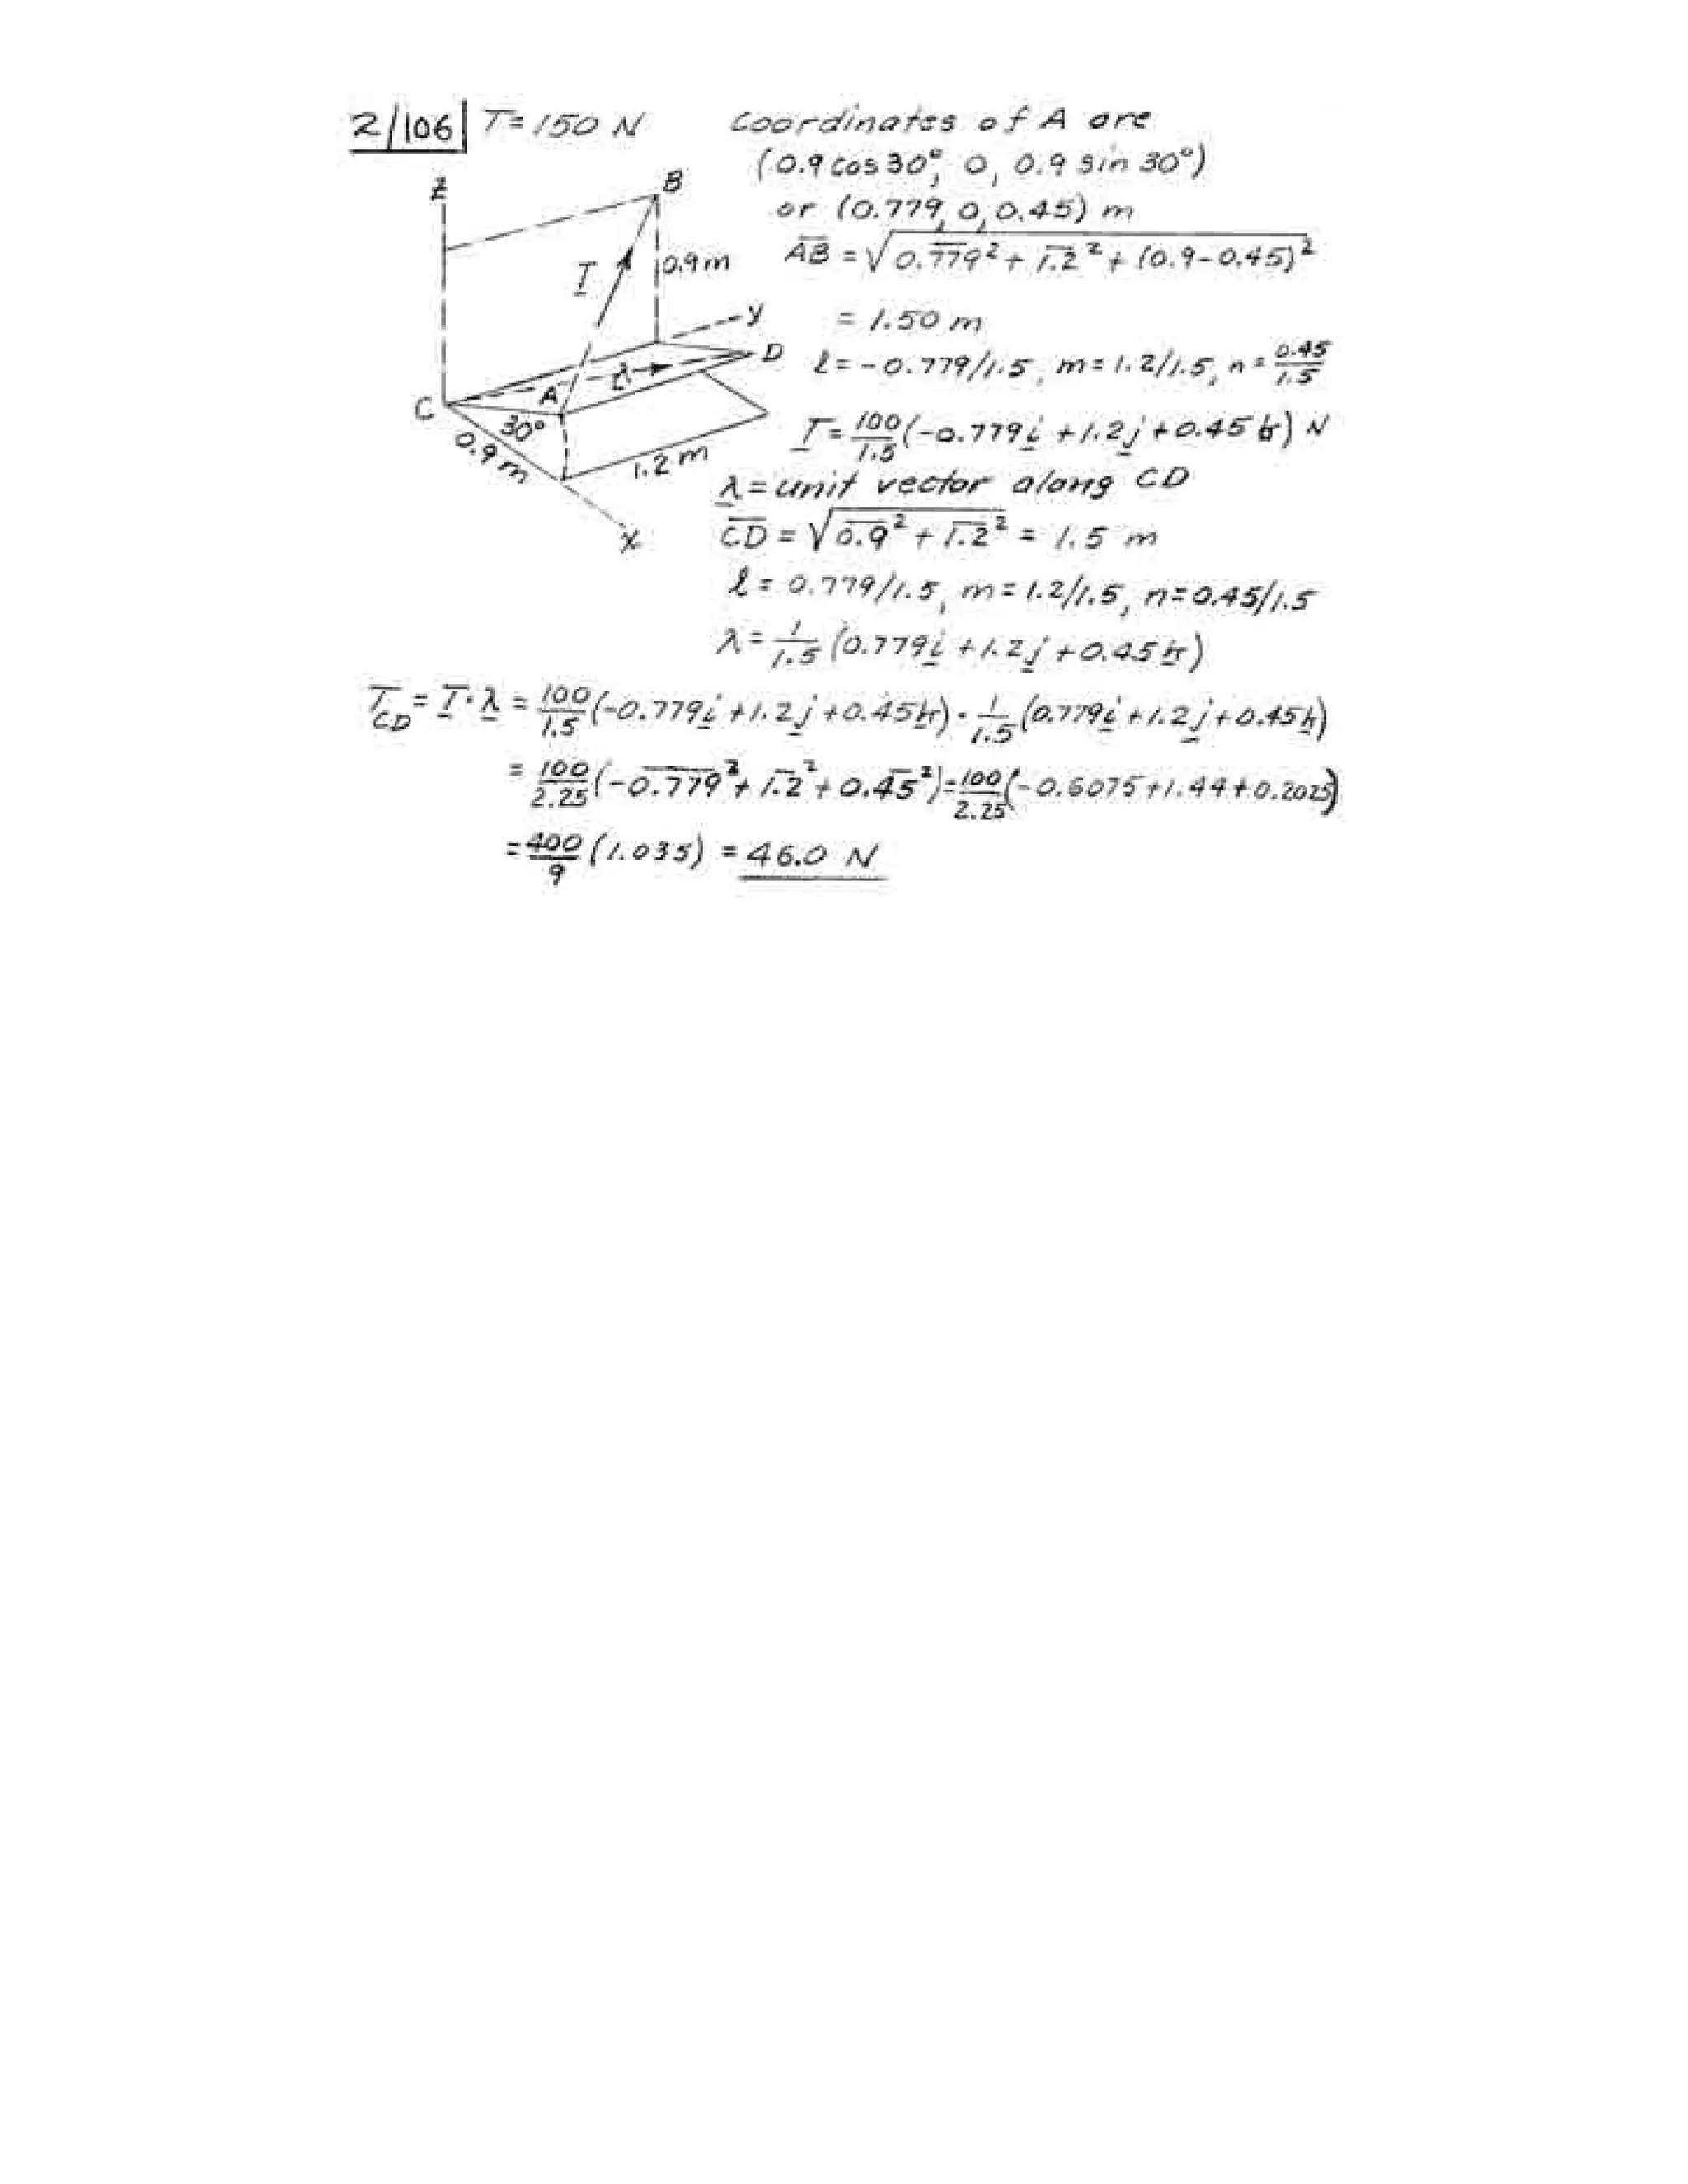 2/106 T = 150 N
Coordinates of A are
(0.9 cos 30°, 0, 0.9 sin 30°)
or (0.779, 0, 0.45) m
AB = √0.779² + 1.2² + (0.9-0.45)²
= 1.50 m
l = -0.779/1.5, m = 1.2/1.5, n = 0.45/1.5
T = 100/1.5 (-0.779i + 1.2j + 0.45k) N
λ = unit vector along CD
CD = √0.9² + 1.2² = 1.5 m
l = 0.779/1.5, m = 1.2/1.5, n = 0.45/1.5
λ = 1/1.5 (0.779i + 1.2j + 0.45k)
z
B
T
0.9 m
y
D
C
A
λ
30°
0.9 m
1.2 m
x
T_CD = T·λ = 100/1.5 (-0.779i + 1.2j + 0.45k) · 1/1.5 (0.779i + 1.2j + 0.45k)
= 100/2.25 (-0.779² + 1.2² + 0.45²) = 100/2.25 (-0.6075 + 1.44 + 0.2025)
= 400/9 (1.035) = 46.0 N